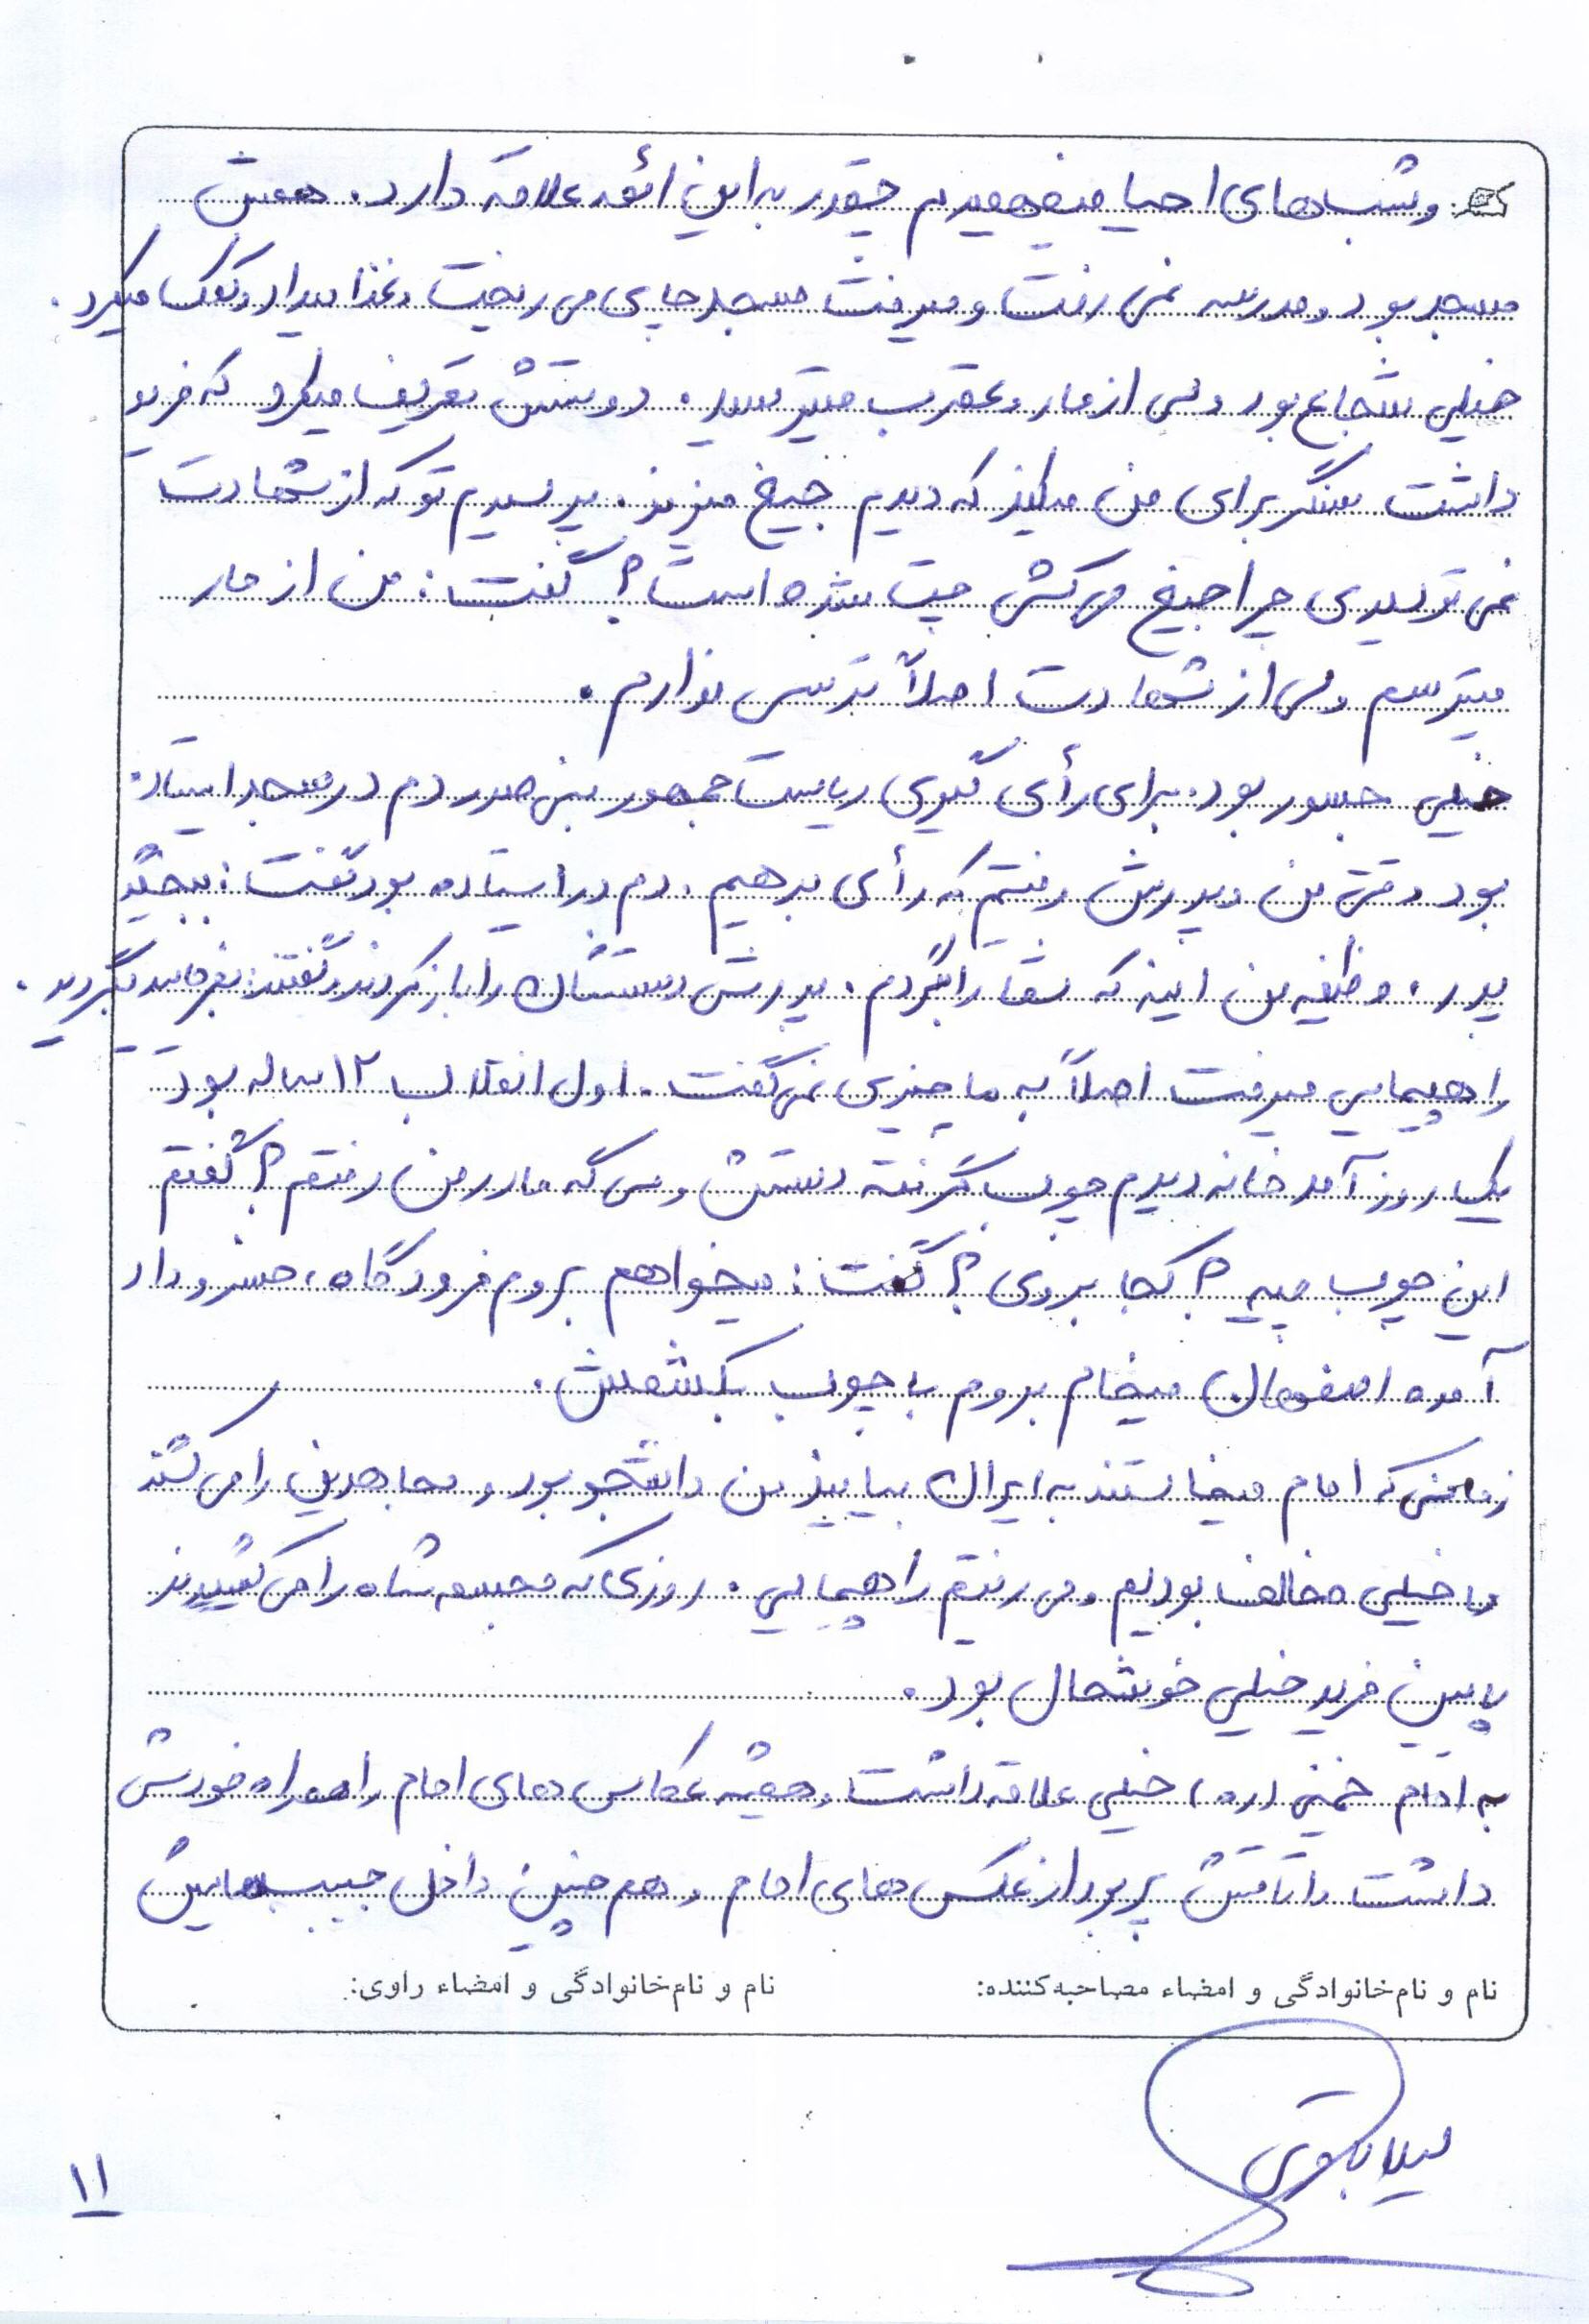 و شب‌های احیا میفهمیدیم چقدر به این ائمه علاقه دارد. همش
مسجد بود و مدرسه نمی رفت و میرفت مسجد چایی می ریخت و غذا میداد و کمک میکرد.
خیلی شجاع بود ولی از مار و عقرب میترسید. دوستش تعریف میکرد که فرید
داشت سنگر برای من میکند که دیدیم جیغ میزند. پرسیدیم تو که از شهادت
نمی ترسیدی چرا جیغ می کشی چت شده است؟ گفت: من از مار
میترسم ولی از شهادت اصلاً ترسی ندارم.
خیلی جسور بود. برای رأی گیری ریاست جمهور بنی صدر دم در مسجد ایستاده
بود وقتی من و پدرش رفتیم که رأی بدهیم. دم در ایستاده بود گفت: ببخشید
پدر، وظیفه من اینه که شما را بگردم. پدرش دستشان را باز کردند و گفتند: بفرمایید بگردید.
راهپیمایی میرفت اصلاً به ما چیزی نمی گفت. اول انقلاب ۱۲ ساله بود
یک روز آمد خانه دیدم چوب گرفته دستش و می گه مادر من رفتم؟ گفتم
این چوب چیه؟ کجا بروی؟ گفت: میخواهم بروم فرودگاه، خسروداد
آمده اصفهان میخام بروم با چوب بکشمش.
زمانی که امام میخاستند به ایران بیایند من دانشجو بود و مجاهدین را می کشتند
ما خیلی مخالف بودیم و می رفتیم راهپیمایی. روزی که مجسمه شاه را می کشیدند
پایین فرید خیلی خوشحال بود.
به امام خمینی (ره) خیلی علاقه داشت و همیشه عکاس های امام را همراه خودش
داشت و اتاقش پر بود از عکس های امام و هم چنین داخل جیب هایش
نام و نام‌خانوادگی و امضاء مصاحبه‌کننده: نام و نام‌خانوادگی و امضاء راوی:
۱۱